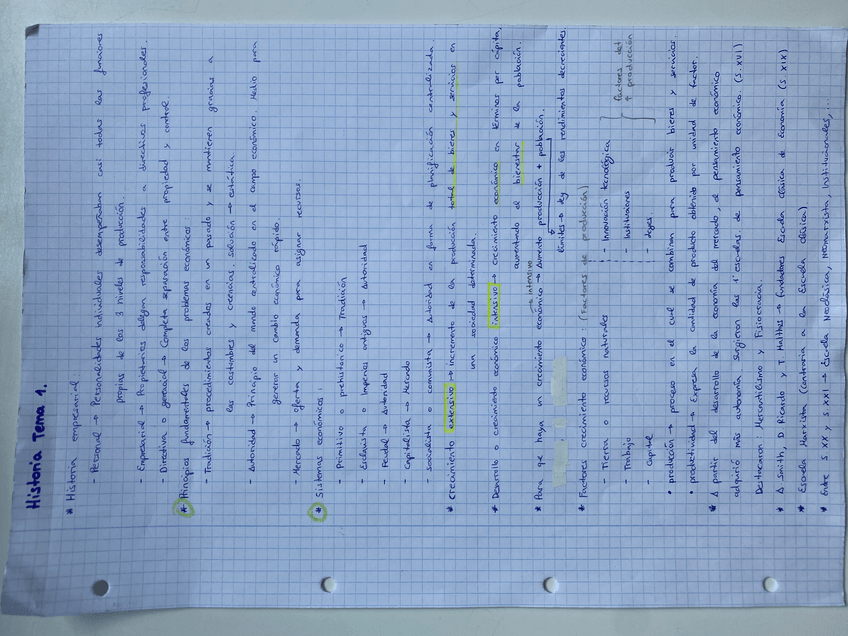 Historia Tema 1.
* Historia empresarial:
- Personal → Personalidades individuales desempeñaban casi todas las funciones
propias de los 3 niveles de producción.
- Empresarial → Propietarios delegan responsabilidades a directivos profesionales.
- Directiva o gerencial → Completa separación entre propiedad y control.
* Principios fundamentales de los problemas económicos:
- Tradición → procedimientos creados en un pasado y se mantienen gracias a
las costumbres y creencias. solución → estática.
- Autoridad → Principio del mando centralizado en el campo económico. Medio para
generar un cambio económico rápido.
Mercado → oferta y demanda para asignar recursos.
* Sistemas económicos:
- Primitivo o prehistórico → Tradición
- Esclavista o Imperios antiguos → Autoridad
- Feudal → Autoridad
- Capitalista → Mercado
- Socialista o comunista → Autoridad en forma de planificación centralizada.
* Crecimiento extensivo → incremento de la producción total de bienes y servicios en
una sociedad determinada.
* Desarrollo o crecimiento económico intensivo → crecimiento económico en términos per cápita,
aumentando el bienestar de la población.
→ intensivo
* Para que haya un crecimiento económico → Aumento producción + población.
límites → ley de los rendimientos decrecientes
* Factores crecimiento económico: (Factores de producción)
- Tierra o recursos naturales - Innovación tecnológica
Trabajo - Instituciones
- Capital - Leyes.
factores del
↑ producción
• producción → proceso en el cual se combinan para producir bienes y servicios.
• productividad → Expresa la cantidad de producto obtenido por unidad de factor.
* A partir del desarrollo de la economía del mercado, el pensamiento económico
adquirió más autonomía. Surgieron las 1ª escuelas de pensamiento económico. (S. XVI)
Destacaron: Mercantilismo y Fisiocracia.
* A Smith, D Ricardo y T. Malthus → fundadores Escuela Clásica de Economía (S. XIX)
* Escuela Marxista (contraria a la Escuela clásica)
* Entre S XX y S. XXI → Escuela Neoclásica, Neomarxista, Institucionales, ...